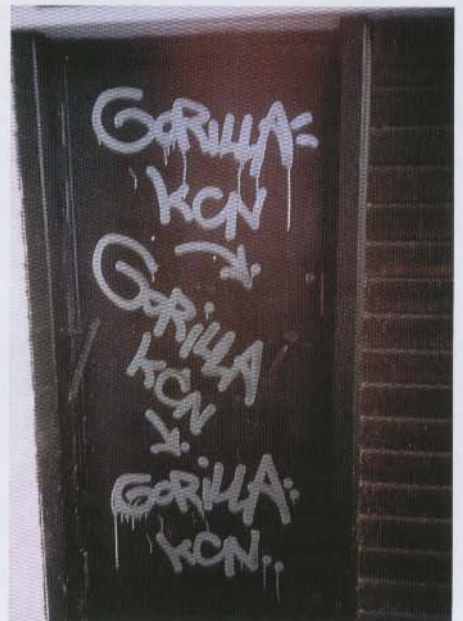 GORILLA
KCN
GORILLA
KCN
GORILLA
KCN